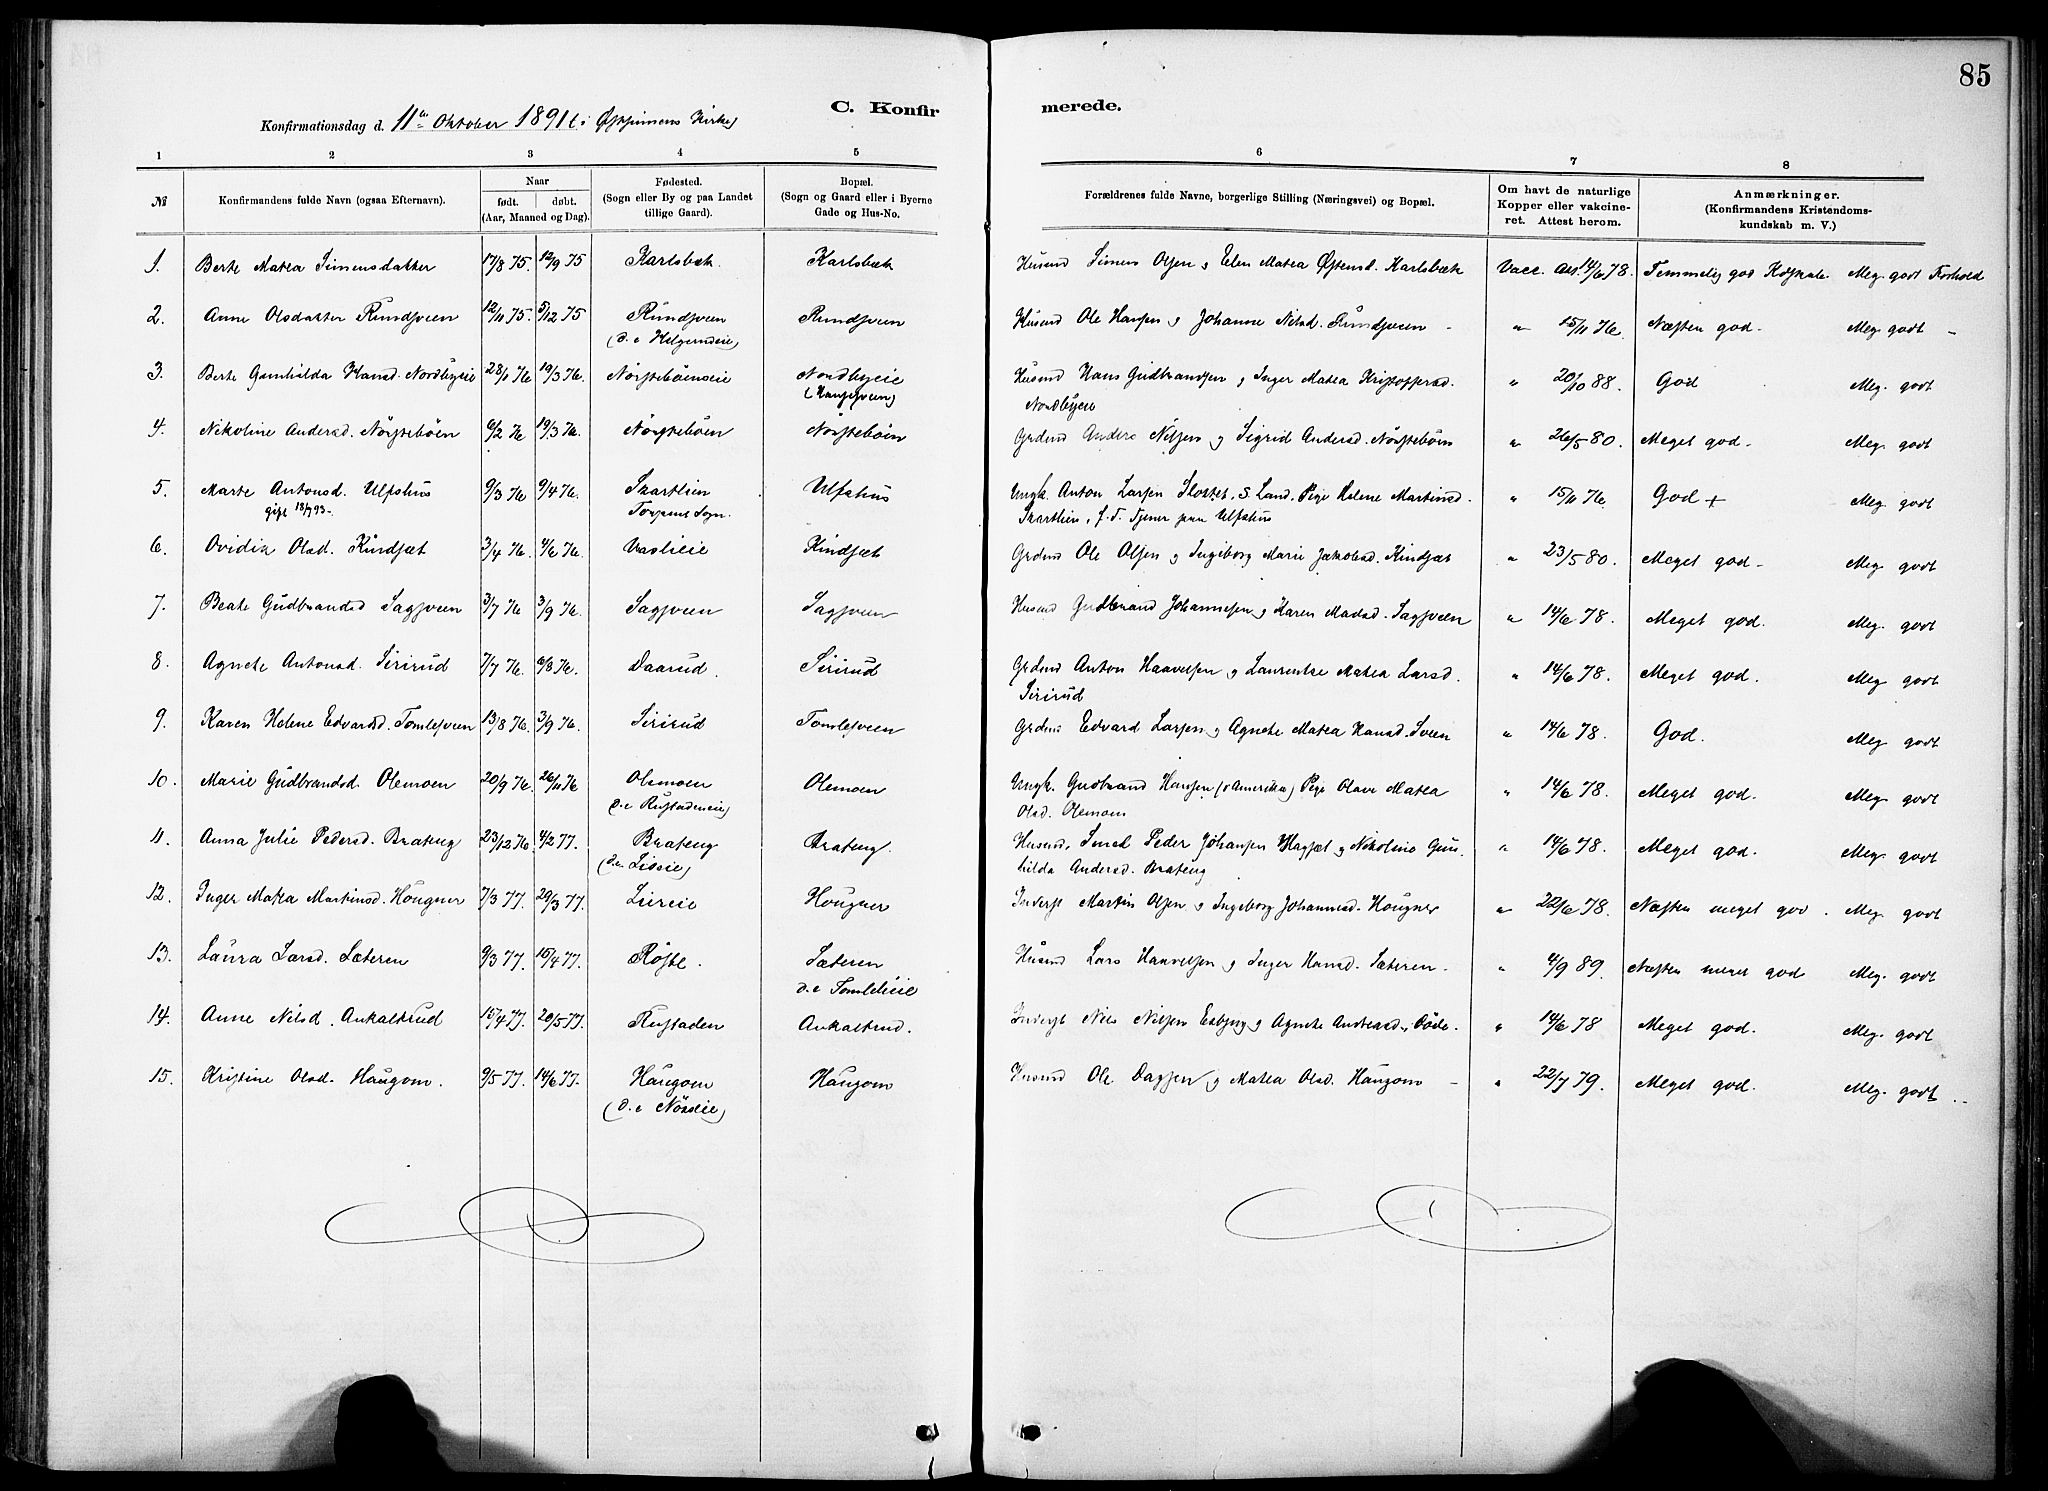 85
C. Konfirmerede.
Konfirmationsdag d. 11te Oktober 1891 (i Østsinnens Kirke)
1 2 3 4 5 6 7 8
№ Konfirmandens fulde Navn (ogsaa Efternavn). Naar født. døbt. (Aar, Maaned og Dag). Fødested. (Sogn eller By og paa Landet tillige Gaard). Bopæl. (Sogn og Gaard eller i Byerne Gade og Hus-No. Forældrenes fulde Navne, borgerlige Stilling (Næringsvei) og Bopæl. Om havt de naturlige Kopper eller vakcineret. Attest herom. Anmærkninger. (Konfirmandens Kristendomskundskab m. V.)
1. Berte Matea Simensdatter 17/8 75. 12/9 75 Karlsbæk. Karlsbæk Husmd Simens Olsen og Elen Matea Østensd. Karlsbæk Vacc. Att. 14/6 78. Temmelig god Kdskab. Meg. godt Forhold
2. Anne Olsdatter Rundsveen 12/11 75. 5/12 75 Rundsveen Rundsveen Husmd Ole Hansen og Johanne Nilsd. Rundsveen - " 15/11 76. Næsten god. Meg. godt -
(d. e Helgerudeie)
3. Berte Gunhilda Hansd. Nordbyeie 28/1 76 19/3 76. Nørstebøeneie Nordbyeie Husmd Hans Gudbrandsen og Inger Matea Kristoffersd. " 20/10 88. God Meg. godt
(Haugsveen) Nordbyeie
4. Nikoline Andersd. Nørstebøen 6/2 76 19/3 76. Nørstebøen Nørstebøen Grdmd Anders Nilsen og Sigrid Andersd. Nørstebøen " 26/5 80. Meget god. Meg. godt
5. Marte Antonsd. Ulfshus 9/3 76 9/4 76. Skartlien Ulfshus Ungk. Anton Larsen Slottet, S. Land. Pige Helene Martinsd. " 15/11 76. God + Meg. godt
gift 18/7 93- Torpens Sogn. Skartlien, f. T. Tjener paa Ulfshus
6. Ovidia Olsd. Kindsæt 3/4 76. 4/6 76. Vaslieie Kindsæt Grdmd Ole Olsen og Ingeborg Marie Jakobsd. Kindsæt " 23/5 80. Meget god. Meg. godt
7. Beate Gudbrandsd Sagsveen 3/7 76 3/9 76. Sagsveen Sagsveen Husmd Gudbrand Johannesen og Karen Madsd. Sagsveen " 14/6 78. Meget god. Meg. godt
8. Agnete Antonsd. Sirirud 7/7 76. 6/8 76. Daarud. Sirirud Grdmd Anton Haavelsen og Laurentse Matea Larsd. " 14/6 78. Meget god. Meg godt
Sirirud
9. Karen Helene Edvardsd. Tomlesveen 13/8 76. 3/9 76. Sirirud Tomlesveen Grdmd Edvard Larsen og Agnete Matea Hansd. Sveen " 14/6 78. God. Meg godt
10. Marie Gudbrandsd. Olemoen 20/9 76. 26/11 76 Olemoen Olemoen Ungk. Gudbrand Hansen (i Amerika) Pige Olave Matea " 14/6 78. Meget god. Meg. godt
(d. e Rustadeneie) Olsd. Olemoen
11. Anna Julie Pedersd. Brateng 23/12 76. 4/2 77. Brateng Brateng. Husmd, Smed Peder Johansen Hagsæt og Nikoline Gun- " 14/6 78. Meget god. Meg. godt
hilda Andersd. Brateng
12. Inger Matea Martinsd. Hougner 7/3 77. 29/3 77. Liereie Hougner Inderst Martin Olsen og Ingeborg Johannesd. Hougner " 22/6 78. Næsten meget god. Meg. godt
13. Laura Larsd. Sæteren 9/3 77. 15/4 77. Røste. Sæteren Husmd Lars Haavelsen og Inger Hansd. Sæteren. " 4/9 89. Næsten meget god Meg. godt
d. e Tomleheie
14. Anne Nilsd. Ankaltrud 15/4 77. 20/5 77. Rustaden Ankaltrud. Inderst Nils Nilsen Esbjug og Agnete Andreasd. Bøle. " 14/6 78 Meget god. Meg. godt
15. Kristine Olsd. Haugom. 9/5 77. 14/6 77. Haugom Haugom Husmd Ole Dagsen og Matea Olsd. Haugom - " 22/7 79. Meget god. Meg. godt
(d. e Nøseie)